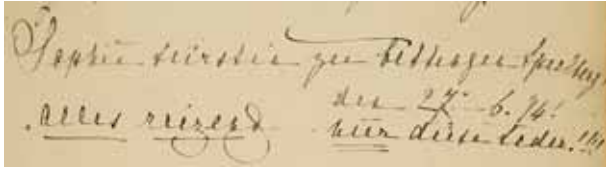 Sophie Fürstin zu Oettingen Spielberg
den 27. 6. 94!
alles reizend nur diese Feder!!!!